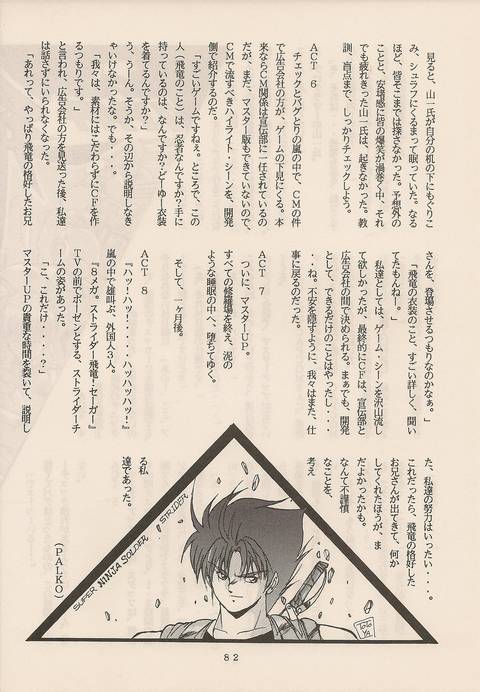 見ると、山一氏が自分の机の下にもぐりこ
み、シュラフにくるまって眠っていた。なる
ほど、皆そこまでは探さなかった。予想外の
ことと、安堵感に皆の爆笑が渦巻く中、それ
でも疲れきった山一氏は、起きなかった。教
訓、盲点まで、しっかりチェックしよう。
ACT 6
チェックとバグとりの嵐の中で、CMの件
で広告会社の方が、ゲームの下見にくる。本
来ならCM関係は宣伝部に一任されているの
だが、まだ、マスター版もできていないので、
CMで流すべきハイライト・シーンを、開発
側で紹介するのだ。
「すごいゲームですねぇ。ところで、この
人（飛竜のこと）は、忍者なんですか？手に
持っているのは、なんですか？どーゆー衣装
を着てるんですか？」
う、うーん。そうか、その辺から説明しなき
ゃいけなかったな。でも・・・。
「我々は、素材にはこだわらずにCFを作
るつもりです。」
と言われ、広告会社の方を見送った後、私達
は話さずにいられなくなった。
「あれって、やっぱり飛竜の格好したお兄
さんを、登場させるつもりなのかなぁ。」
「飛竜の衣装のこと、すごい詳しく、聞い
てたもんねー。」
私達としては、ゲーム・シーンを沢山流し
て欲しかったが、最終的にCFは、宣伝部と
広告会社の間で決められる。まぁでも、開発
として、できるだけのことはやったし・・・
・・ね。不安を隠すように、我々はまた、仕
事に戻るのだった。
ACT 7
ついに、マスターUP。
すべての修羅場を終え、泥の
ような睡眠の中へ、堕ちてゆく。
そして、一ヶ月後。
ACT 8
『ハッ・・ハッ！・・・・ハッハッハッ！』
嵐の中で雄叫ぶ、外国人3人。
『8メガ。ストライダー飛竜！セーガー』
TVの前でボーゼンとする、ストライダーチ
ームの姿があった。
「こ、これだけ・・・・？」
マスターUPの貴重な時間を裂いて、説明し
た、私達の努力はいったい・・・・。
これだったら、飛竜の格好した
お兄さんが出てきて、何か
してくれたほうが、ま
だよかったかも。
なんて不謹慎
なことを、
考え
る私
達であった。
(PALKO)
SUPER NINJA SOLDER STRIDER
TOTO
YA
82